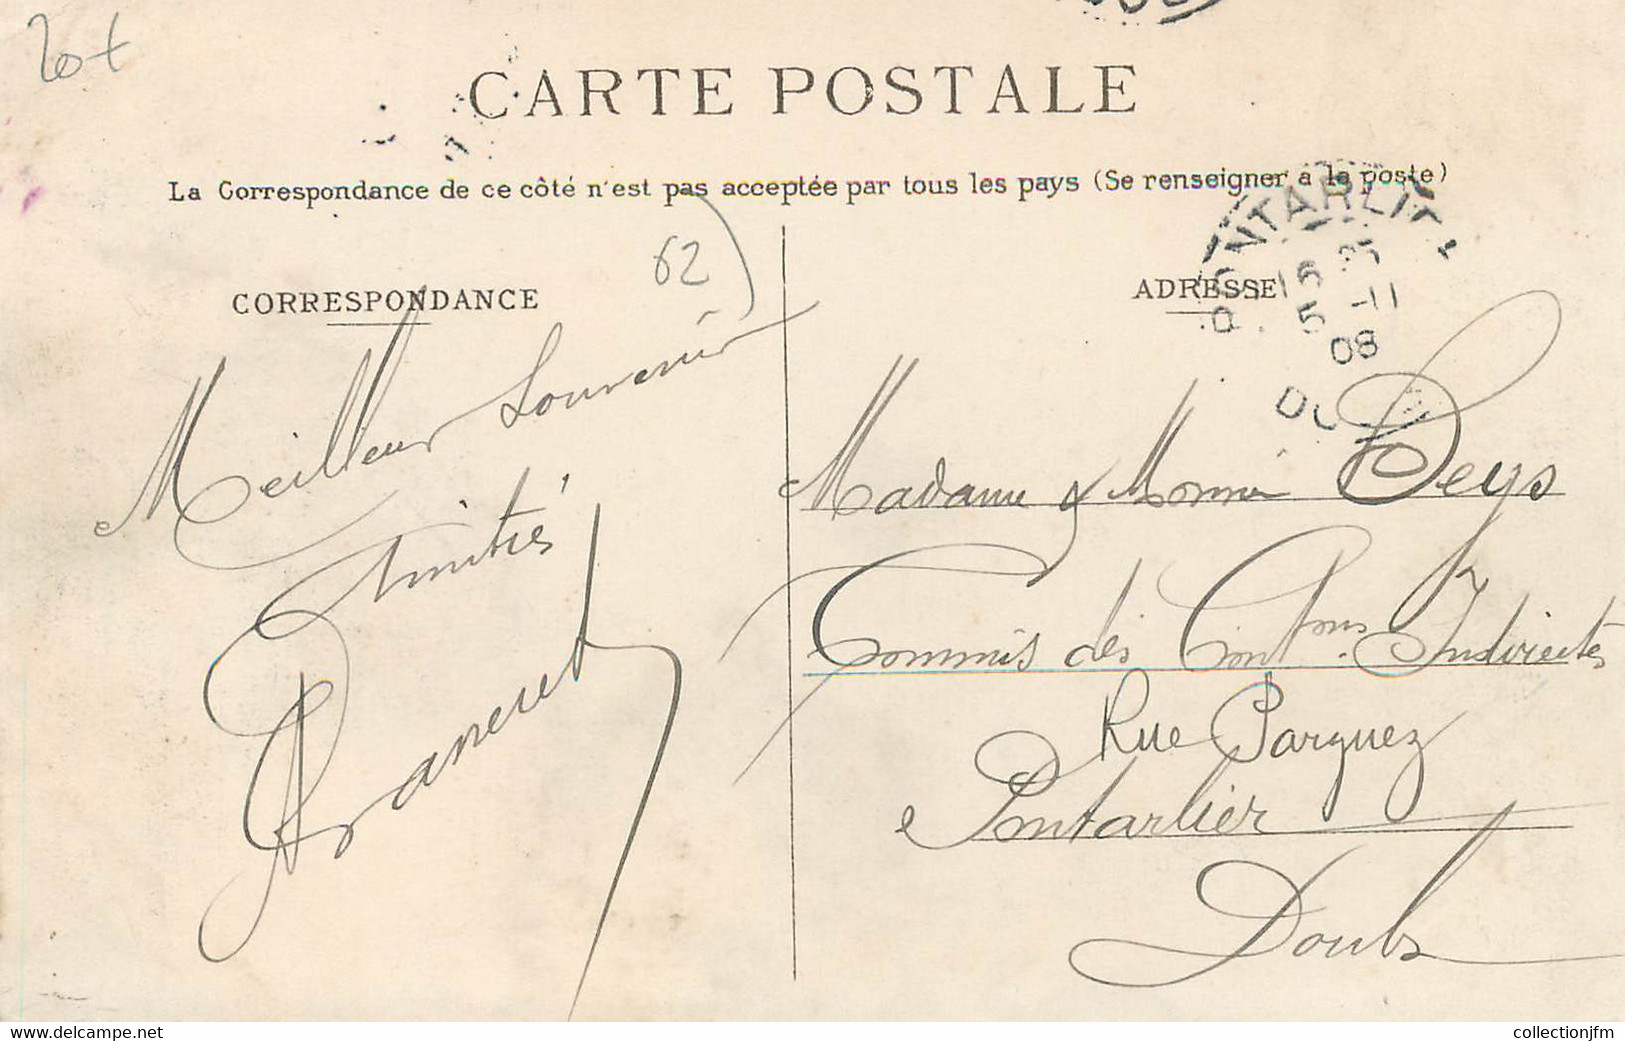 20t
CARTE POSTALE
La Correspondance de ce côté n'est pas acceptée par tous les pays (Se renseigner a la poste)
62
CORRESPONDANCE
Meilleur Souvenir
Amitiés
ADRESSE
PONTARLIER
5 -11
08
Madame & Monsieur Peys
Commis des Contons Indirectes
Rue Parguez
Pontarlier
Doubs
www.delcampe.net
collectionjfm